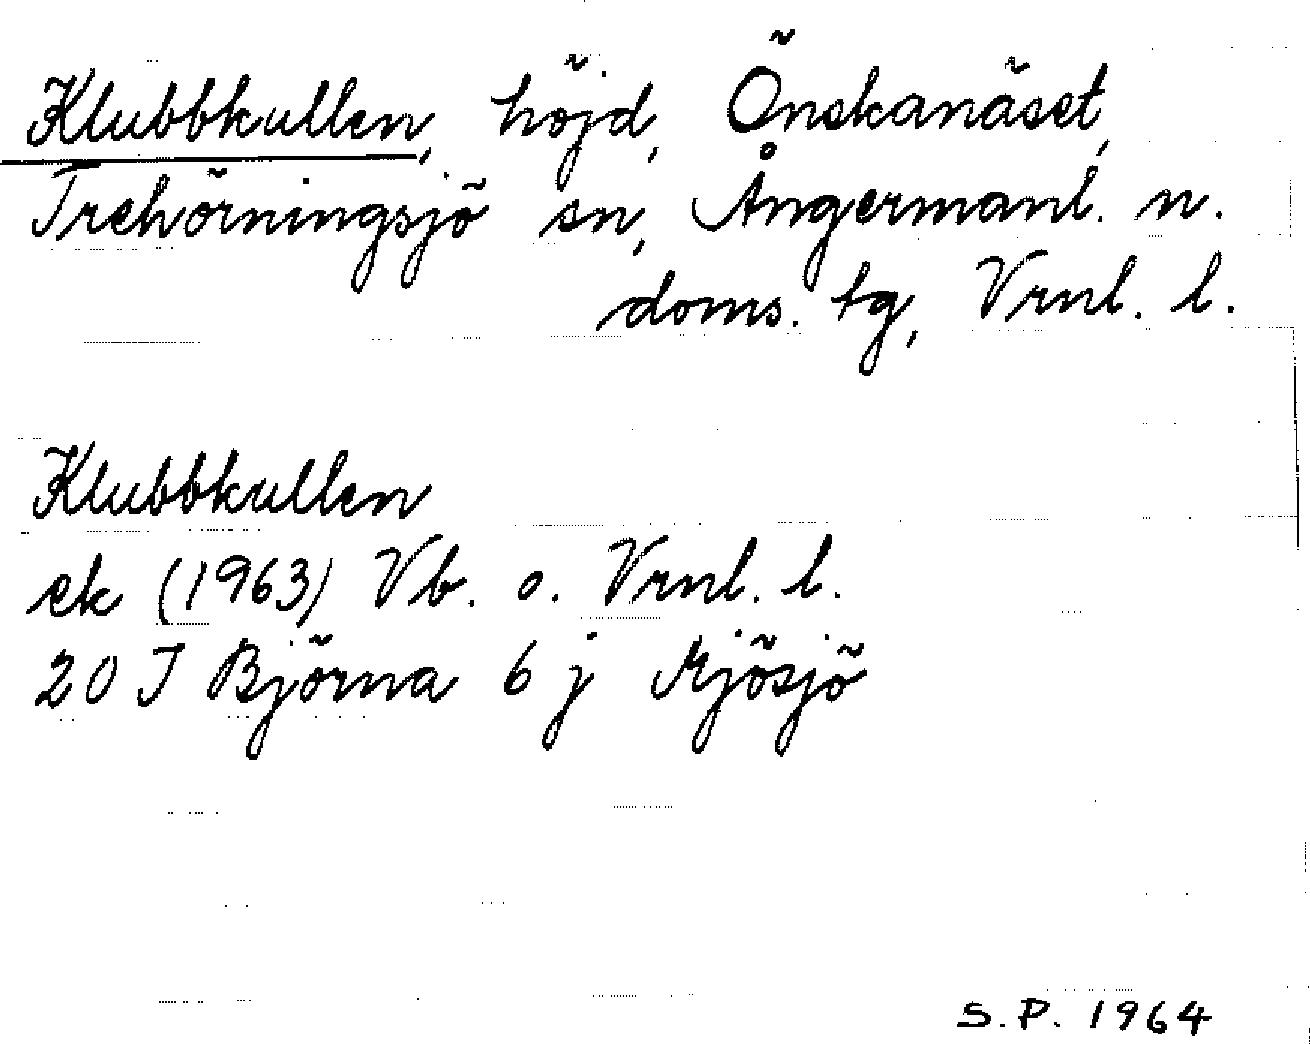 Klubbkullen, höjd, Önskanäset,
Trehörningsjö sn, Ångermanl. n.
doms. tg, Vrnl. l.
Klubbkullen
ek (1963) Vb. o. Vrnl. l.
20 J Björna 6 j Mjösjö
S.P. 1964